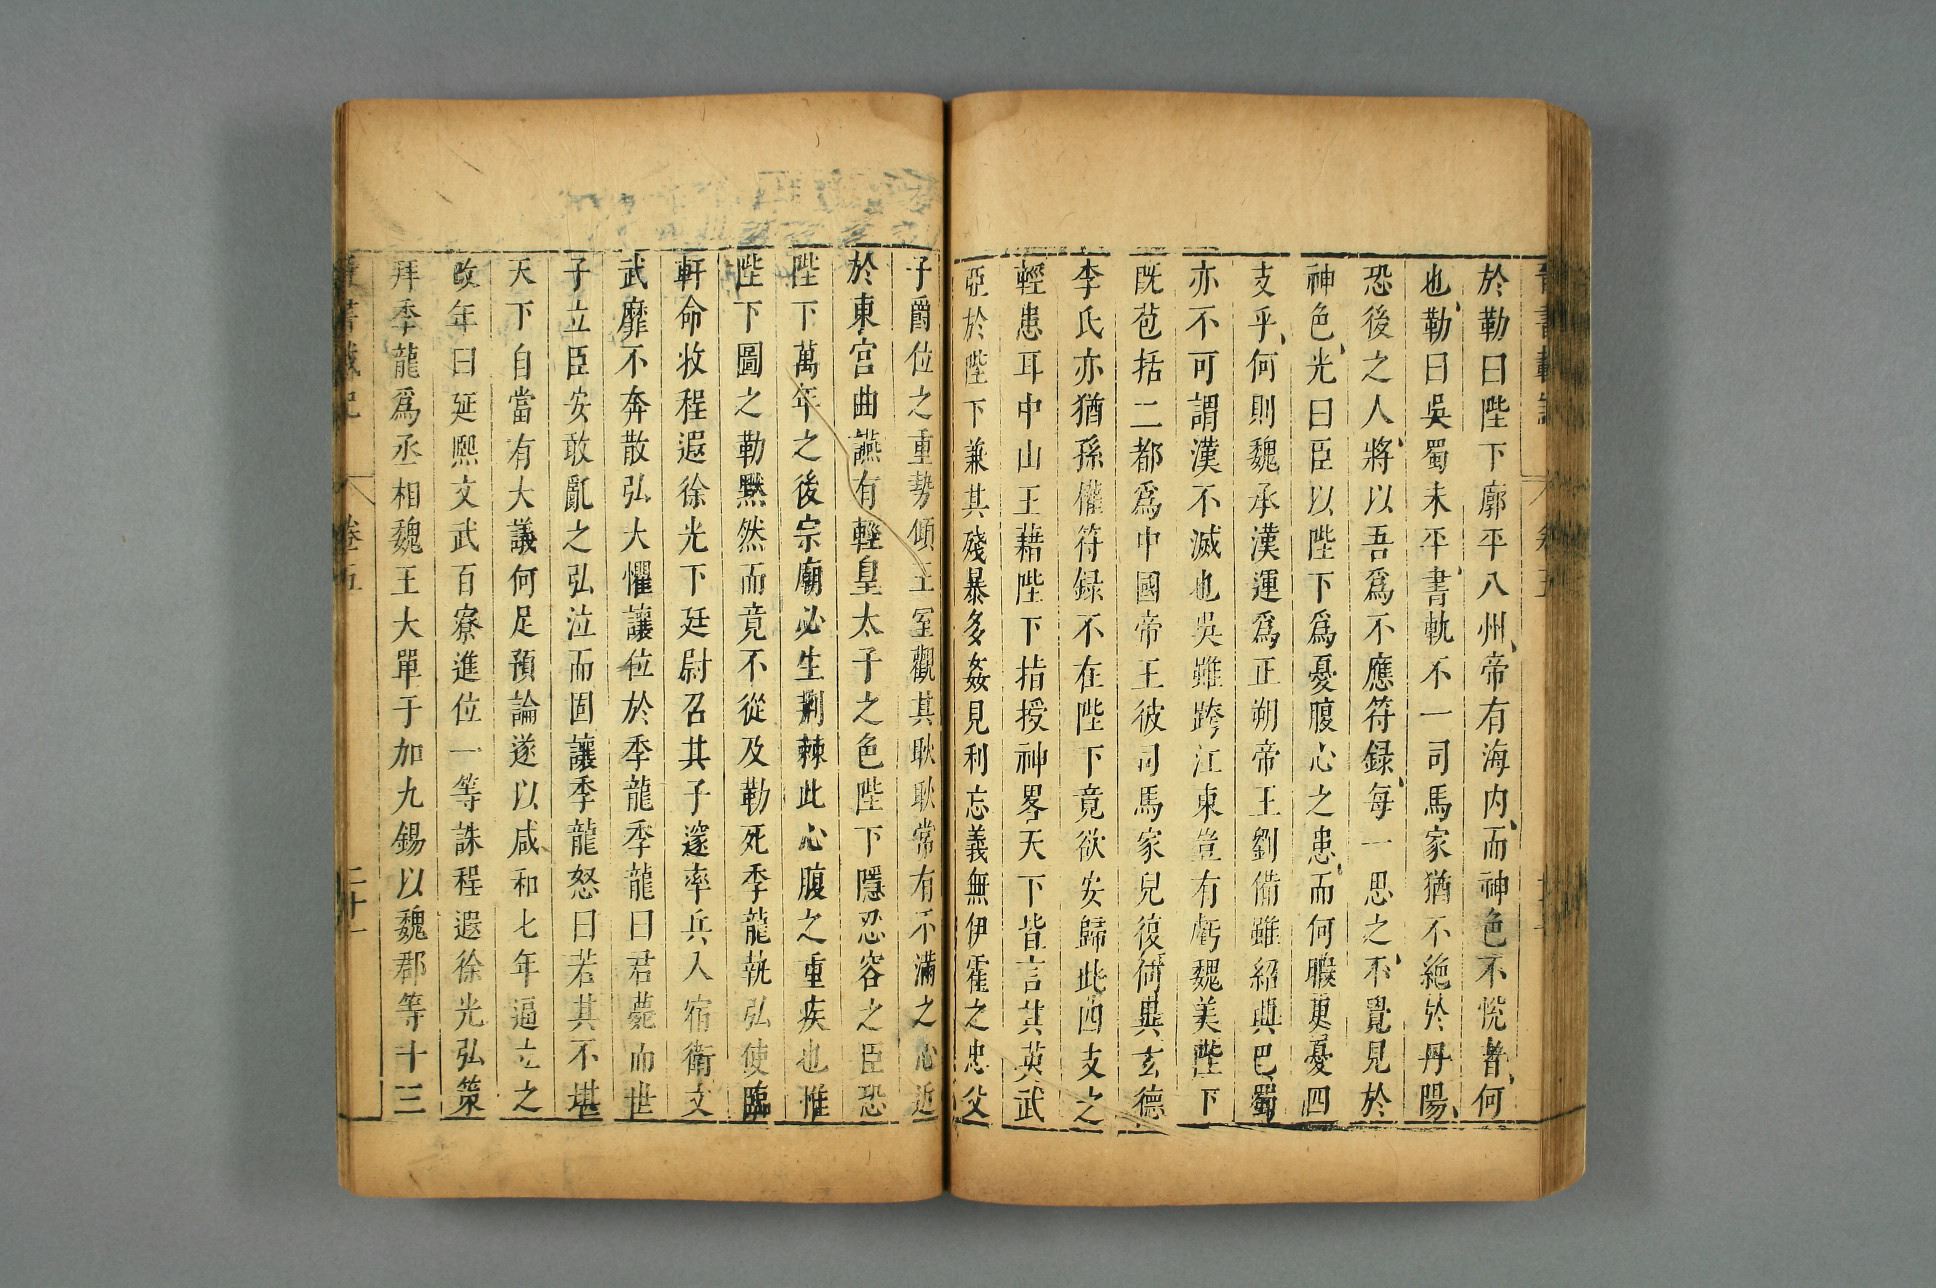 晉書載記 卷五
於勒曰陛下廓平八州帝有海內而神色不悅者何
也勒曰吳蜀未平書軌不一司馬家猶不絕於丹陽
恐後之人將以吾爲不應符録每一思之不覺見於
神色光曰臣以陛下爲憂腹心之患而何暇更憂四
支乎何則魏承漢運爲正朔帝王劉備雖紹興巴蜀
亦不可謂漢不滅也吳雖跨江東豈有虧魏美陛下
既苞括二都爲中國帝王彼司馬家兒復何異玄德
李氏亦猶孫權符録不在陛下竟欲安歸此四支之
輕患耳中山王藉陛下指授神畧天下皆言其英武
亞於陛下兼其殘暴多姦見利忘義無伊霍之忠父
子爵位之重勢傾王室觀其耿耿常有不滿之心近
於東宮曲讌有輕皇太子之色陛下隱忍容之臣恐
陛下萬年之後宗廟必生荆棘此心腹之重疾也惟
陛下圖之勒黙然而竟不從及勒死季龍執弘使臨
軒命收程遐徐光下廷尉召其子邃率兵入宿衛文
武靡不奔散弘大懼讓位於季龍季龍曰君薨而世
子立臣安敢亂之弘泣而固讓季龍怒曰若其不堪
天下自當有大議何足預論遂以咸和七年逼立之
改年曰延熙文武百寮進位一等誅程遐徐光弘策
拜季龍爲丞相魏王大單于加九錫以魏郡等十三
晉書載記 卷五 二十一